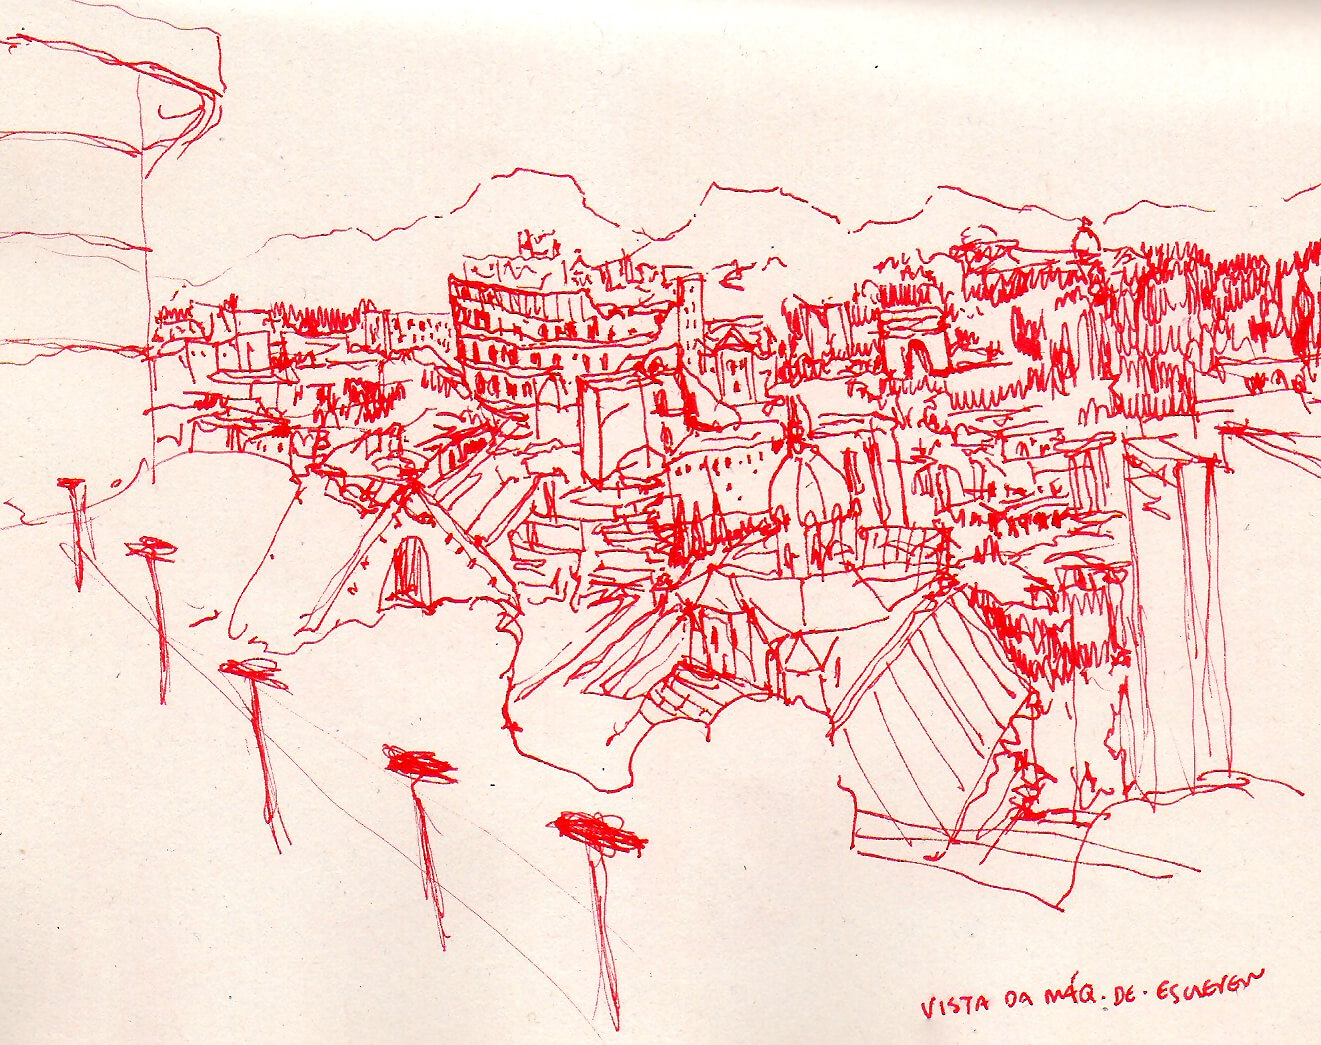 VISTA DA MÁQ. DE. ESCREVER